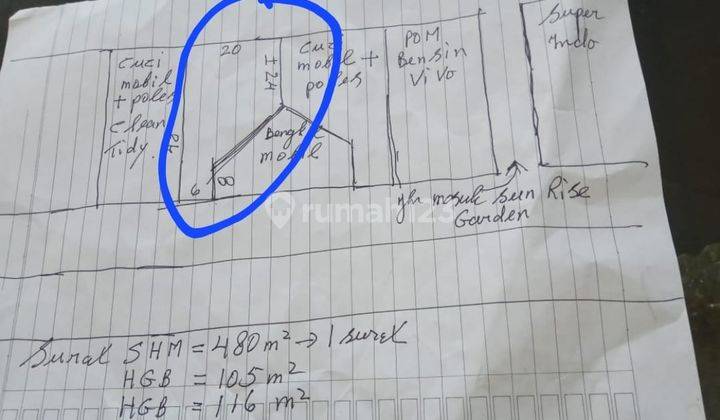 Super
Indo
Cuci
mobil
+ poles
Clean
Tidy
20
± 24
Cuci
mobil +
poles
POM
Bensin
Vivo
Bengkel
mobil
6
8
jln masuk Sun Rise
Garden
rumah123
Surat SHM = 480 m² → 1 surat
HGB = 105 m²
HGB = 116 m²